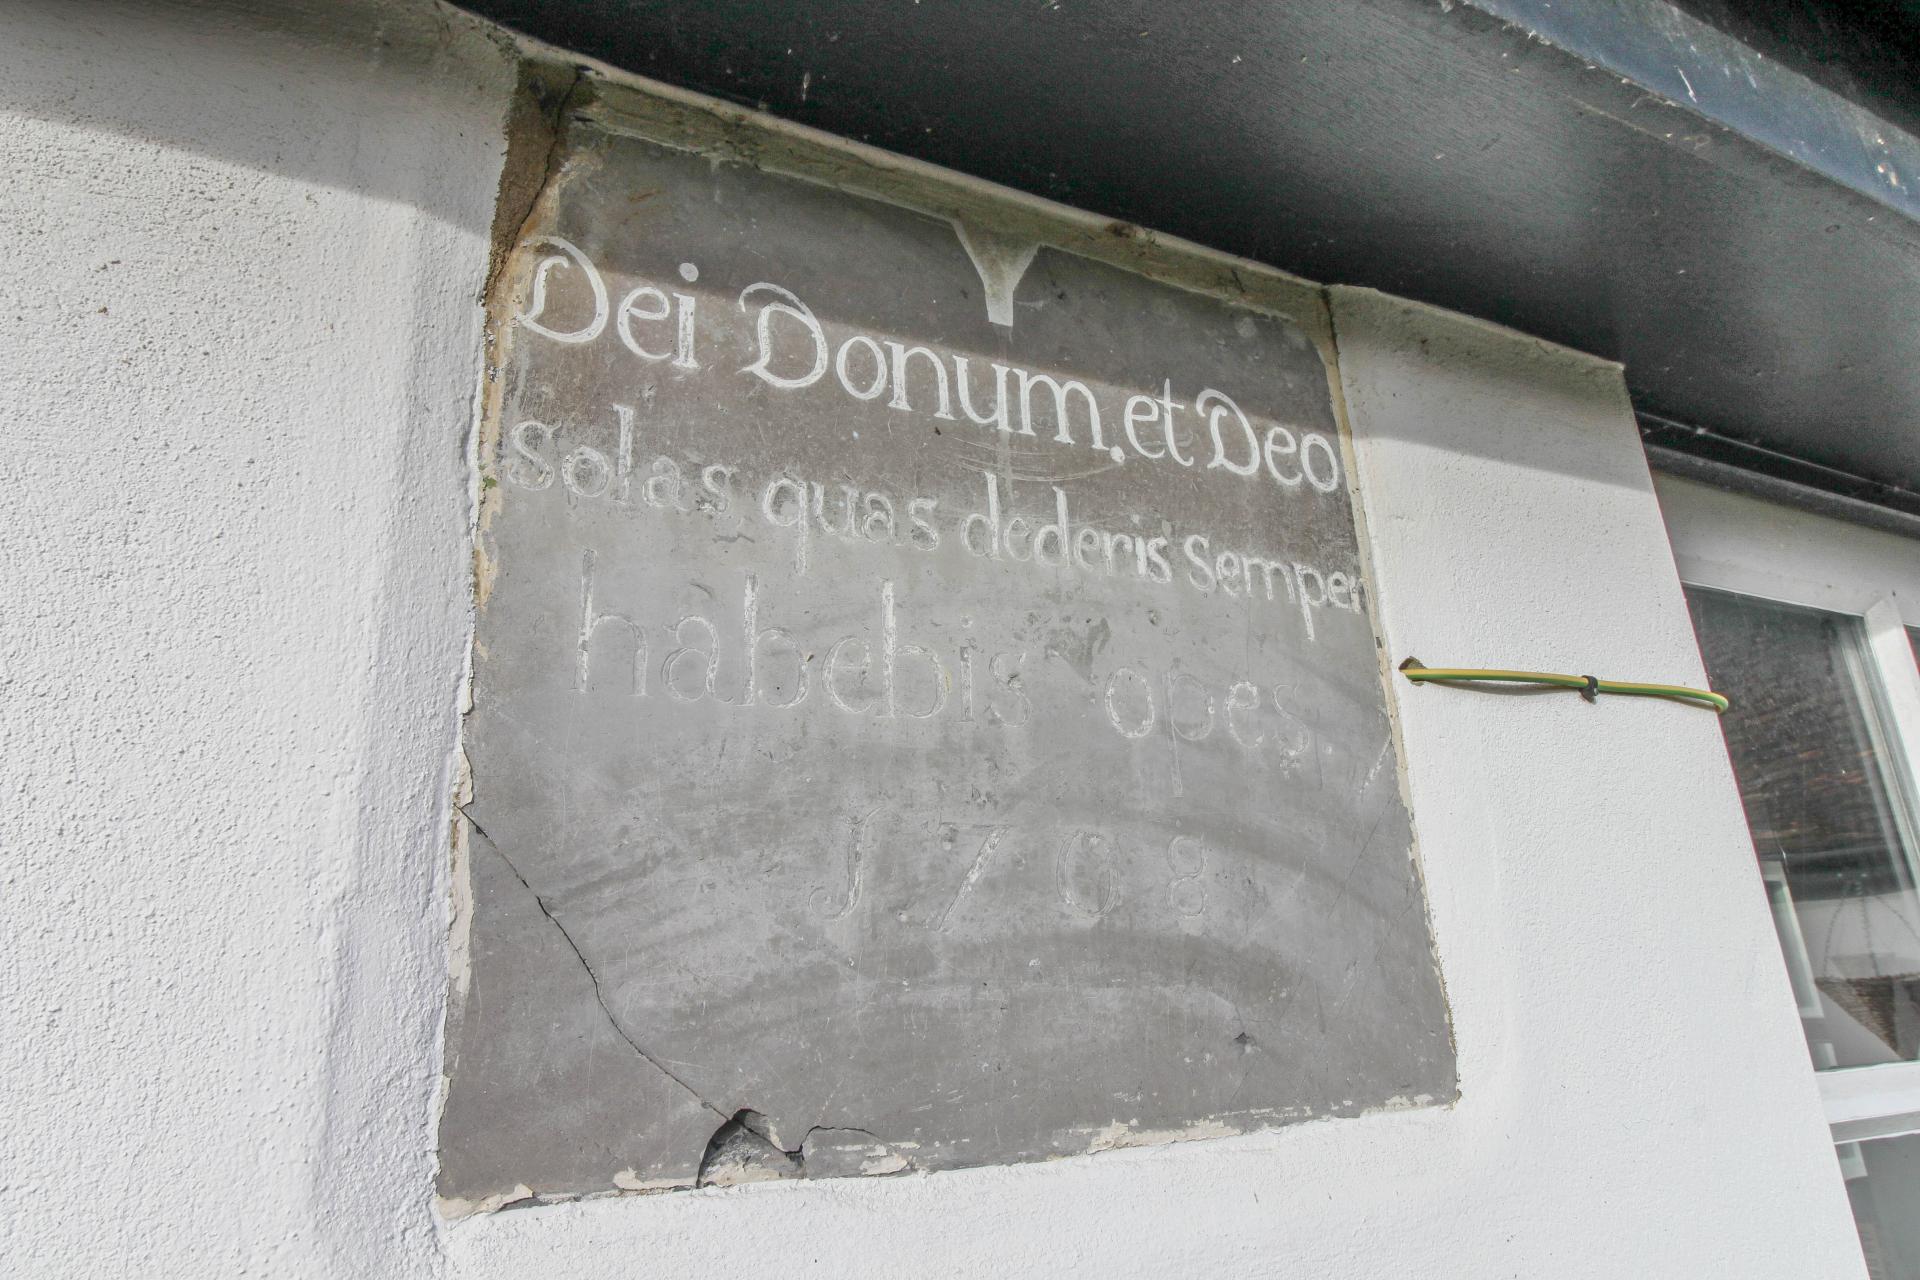 Dei Donum. et Deo
solas quas dederis semper
habebis opes.
1708